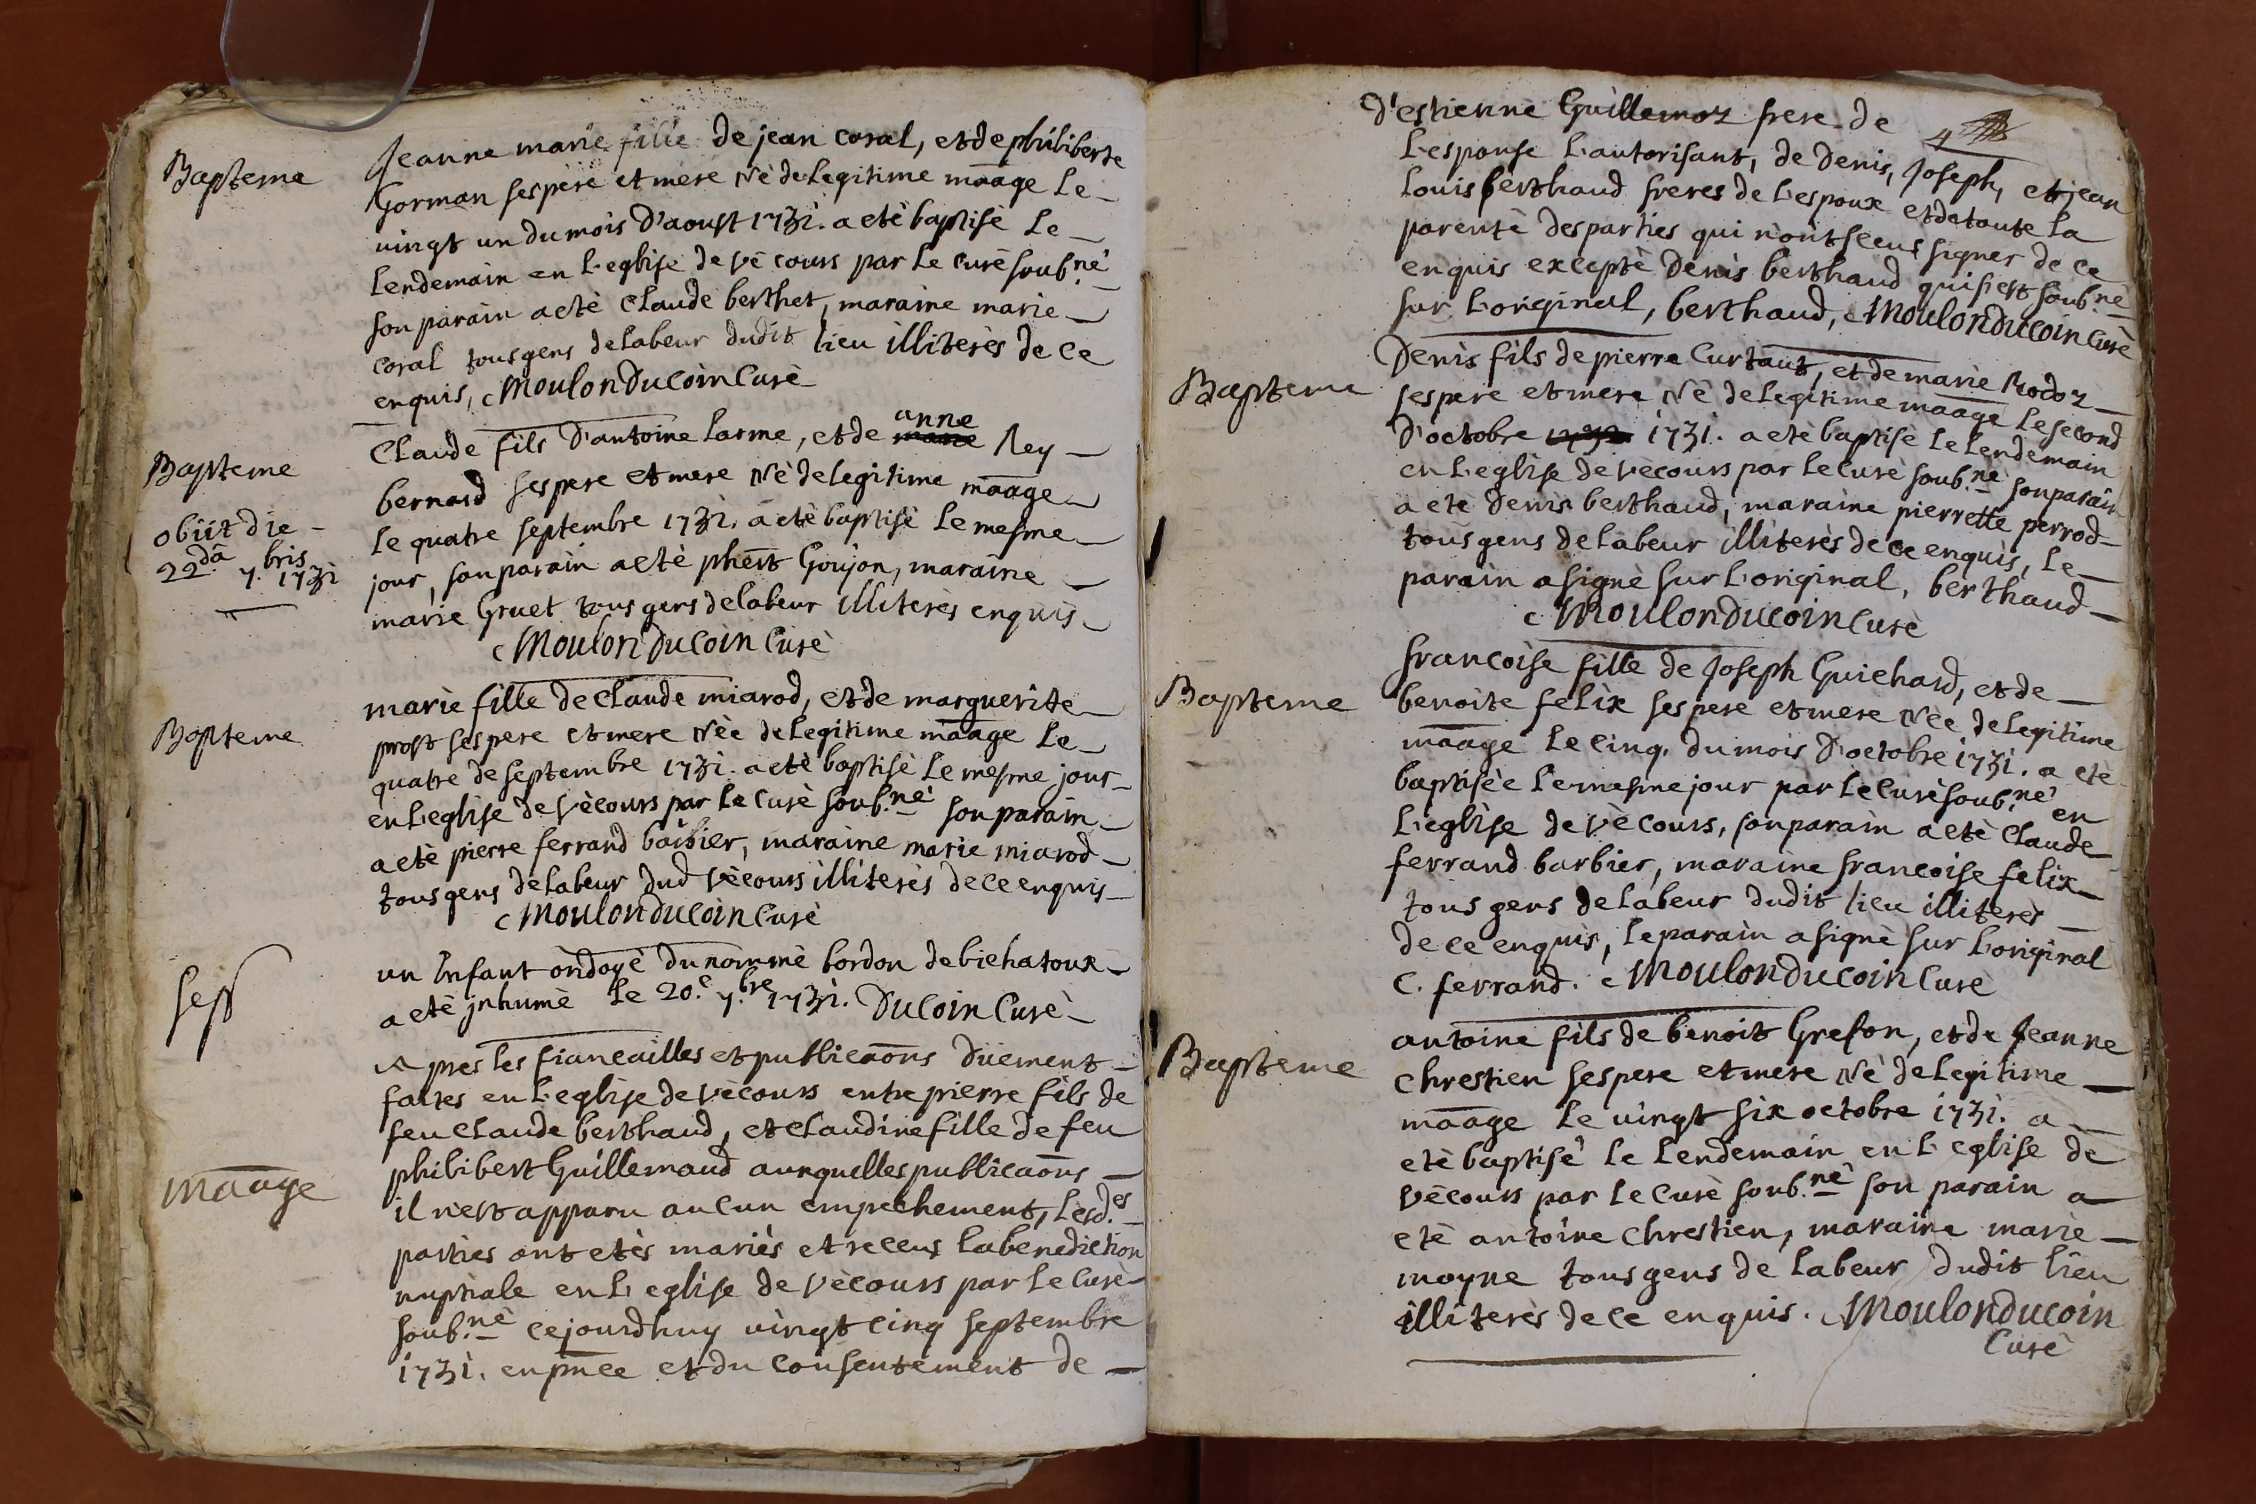 Bapteme
Jeanne marie fille de jean coral, et de philiberte
Gorman ses pere et mere Nè de Legitime maãge Le
vingt un du mois D'aoust 1731. a etè baptisè Le
Lendemain en L'eglise de vècours par Le curè soub.né
son parain a etè Claude berthet, maraine marie
coral tous gens de labeur dudit lieu illiterès de ce
enquis, Moulon Ducoin Curè
Bapteme
obiit die
22.da 7.bris
1731
Claude fils D'antoine Larme, et de anne Rey
bernard ses pere et mere Nè de legitime maãge
Le quatre septembre 1731. a etè baptisè Le mesme
jour, son parain a etè phert Goujon, maraine
marie Gruet tous gens de labeur illiterès enquis
Moulon Ducoin Curè
Bapteme
marie fille de Claude miarod, et de marguerite
prost ses pere et mere Nèe de Legitime maãge Le
quatre de septembre 1731. a etè baptisè Le mesme jour
en L'eglise de Vècours par Le Curè soub.né son parain
a etè pierre ferrand barbier, maraine marie miarod
tous gens de labeur dud Vècours illiterès de ce enquis
Moulon Ducoin Curè
sep
un Infant ondoyè du nommè bordon de bichatoux
a etè jnhumè Le 20.e 7.bre 1731. Ducoin Curè
maãge
Apres les fiancailles et publicaõns Düement
faites en L'eglise de Vècours entre pierre fils de
feu Claude berthaud, et Claudine fille de feu
philibert Guillemaud auxquelles publicaõns
il n'est apparu aucun empechement, Lesd.es
parties ont etès mariès et receus la benediction
nuptiale en L'eglise de Vècours par Le Curè
soub.né cejourdhuy vingt cinq septembre
1731. en pñce et du consentement de
D'estienne Guillemoz frere de
4
L'espouse L'autorisant, de Denis, Joseph, et jean
Louis berthaud freres de L'espoux et de toute la
parentè des parties qui n'ont sceus signer de ce
enquis exceptè Denis berthaud qui s'est soub.né
sur L'original, berthaud, Moulon Ducoin Curè
Bapteme
Denis fils de pierre Curtaut, et de marie Rodoz
ses pere et mere Nè de Legitime maãge Le second
D'octobre 1731. a etè baptisè Le Lendemain
en L'eglise de vècours par Le Curè soub.né son parain
a etè Denis berthaud, maraine pierrette perrod
tous gens de labeur illiterès de ce enquis, Le
parain a signè sur L'original, berthaud
Moulon Ducoin Curè
Bapteme
francoise fille de Joseph Guichard, et de
benoite felix ses pere et mere Nèe de Legitime
maãge Le cinq. du mois D'octobre 1731. a etè
baptisèe Le mesme jour par Le Curè soub.né en
L'eglise de Vècours, son parain a etè Claude
ferrand barbier, maraine francoise felix
tous gens de labeur dudit lieu illiterès
de ce enquis, Le parain a signè sur L'original
C. ferrand. Moulon Ducoin Curè
Bapteme
antoine fils de benoit Grefon, et de Jeanne
Chrestien ses pere et mere Nè de Legitime
maãge Le vingt six octobre 1731. a
etè baptisè Le Lendemain en L'eglise de
Vècours par Le Curè soub.né son parain a
etè antoine Chrestien, maraine marie
moyne tous gens de labeur dudit lieu
illiterès de ce enquis. Moulon Ducoin
Curè